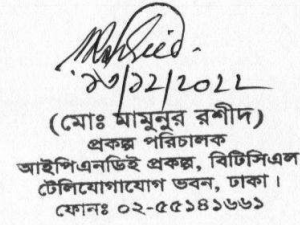 ১৩/১২/২০২২
(মোঃ মামুনুর রশীদ)
প্রকল্প পরিচালক
আইপিএনডিই প্রকল্প, বিটিসিএল
টেলিযোগাযোগ ভবন, ঢাকা।
ফোনঃ ০২-৫৫১৪১৬৬১